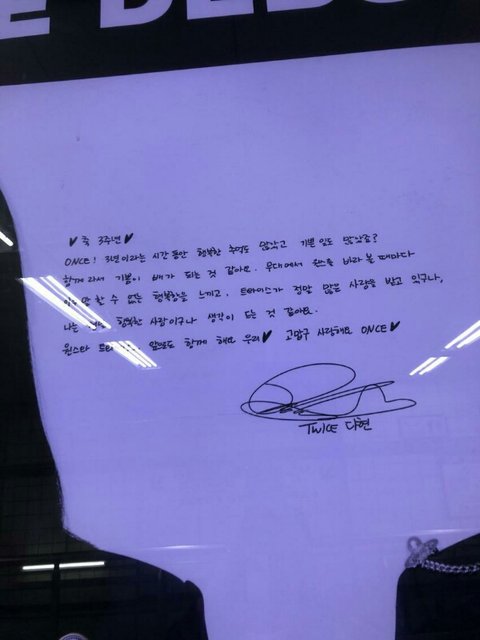 E DEBU
♥축 3주년♥
ONCE! 3년이라는 시간동안 행복한 추억도 많았고 기쁜 일도 많았죠?
함께 라서 기쁨이 배가 되는 것 같아요. 무대에서 원스를 바라 볼 때마다
할 수 없는 행복함을 느끼고, 트와이스가 정말 많은 사랑을 받고 있구나,
나는 행복한 사람이구나 생각이 드는 것 같아요.
원스랑 앞으로도 함께 해요 우리♥ 고맙구 사랑해요 ONCE♥
TWICE 다현